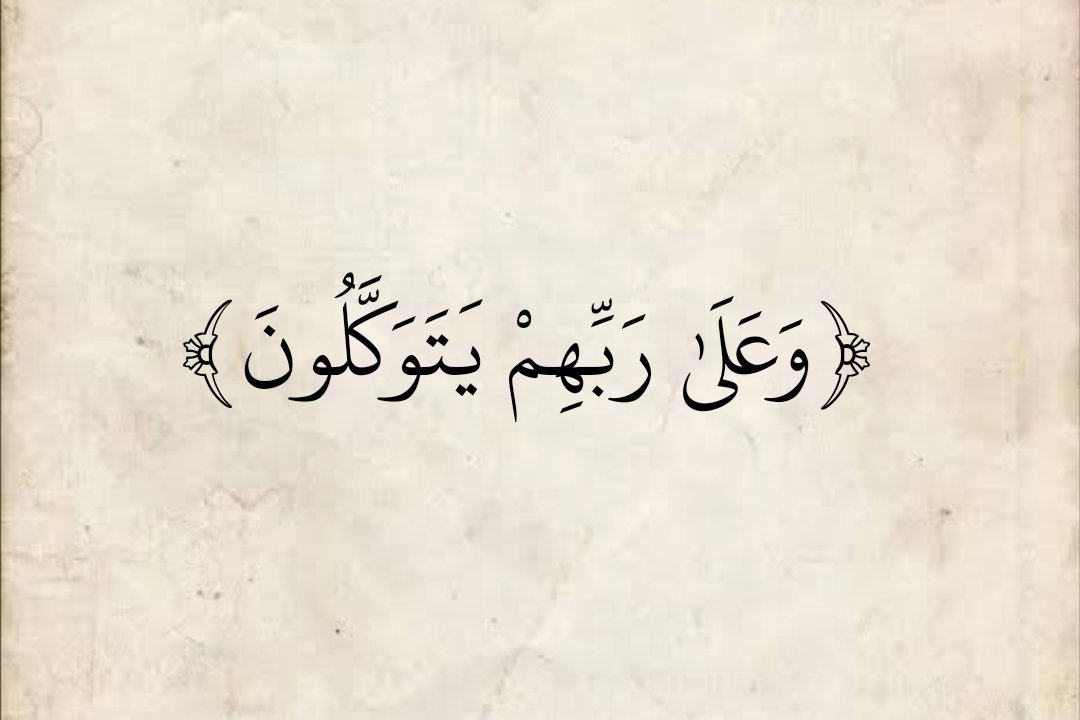 ﴿ وَعَلَىٰ رَبِّهِمْ يَتَوَكَّلُونَ ﴾